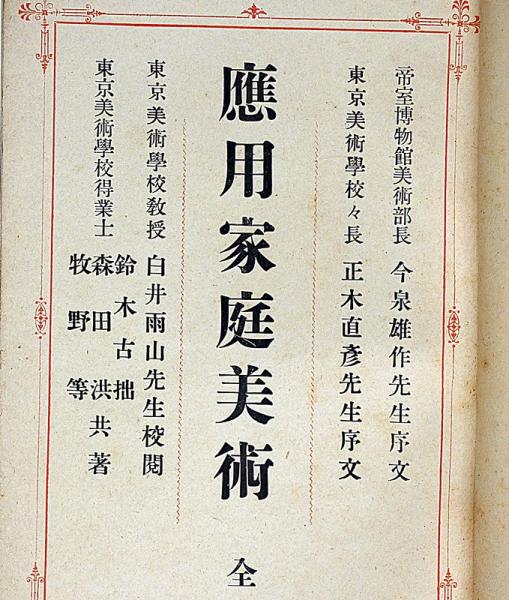 帝室博物館美術部長 今泉雄作先生序文
東京美術學校々長 正木直彥先生序文
應用家庭美術 全
東京美術學校敎授 白井雨山先生校閱
東京美術學校得業士 鈴木古拙
森田洪共著
牧野等